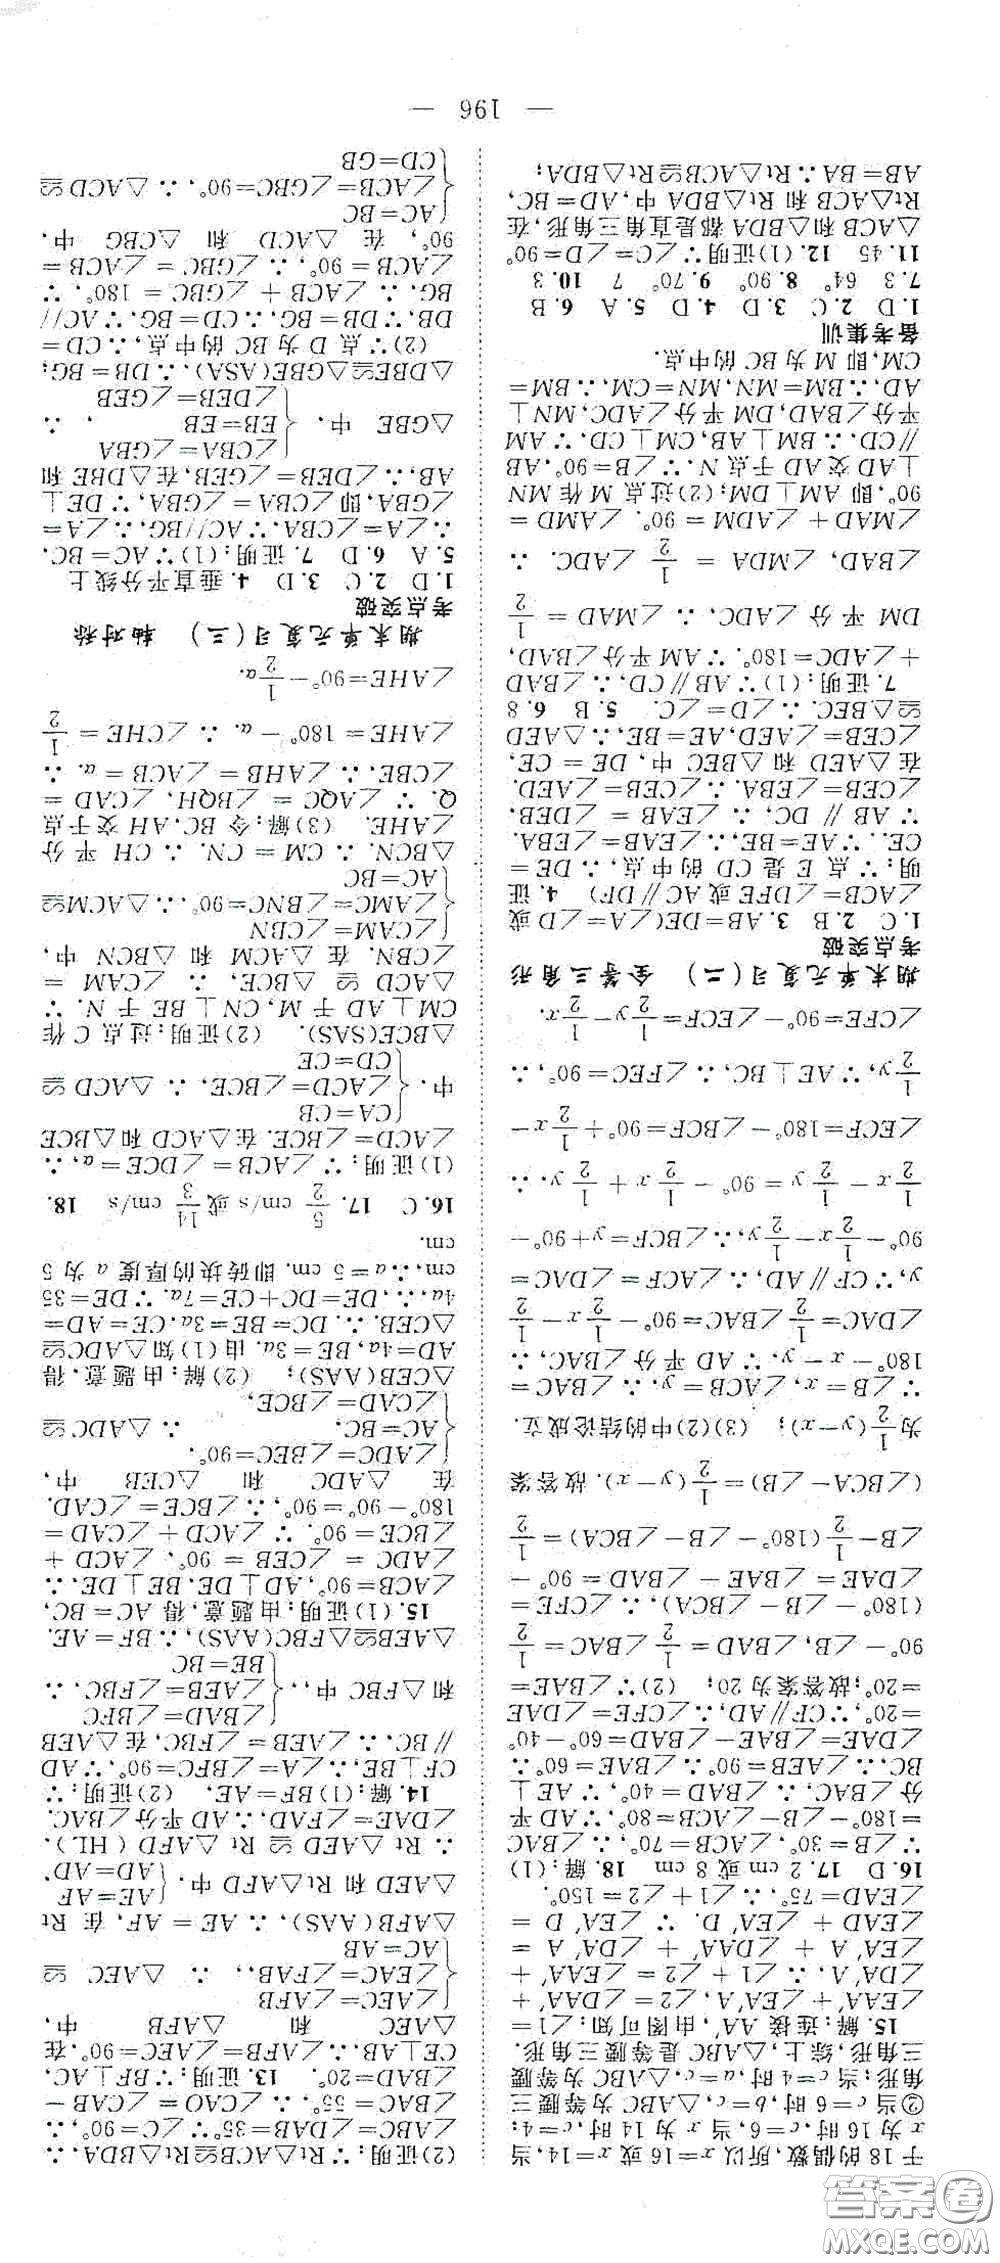 于 18 的偶数,所以 x=16 或 x=14,当
x 为 16 时,c=6,当 x 为 14 时,c=4;
②当 c=6 时,b=c,△ABC 为等腰三
角形;当 c=4 时,a=c,△ABC 为等腰
三角形,综上,△ABC 是等腰三角形.
15. 解:连接 AA′,由图可知:∠1=
∠EAA′+∠EA′A,∠2=∠DAA′+
∠DA′A.∴∠1+∠2=∠EAA′+
∠EA′A+∠DAA′+∠DA′A=
∠EAD+∠EA′D.∵∠EA′D=
∠EAD=75°,∴∠1+∠2=150°.
16. D 17. 2 cm 或 8 cm 18. 解:(1)
∵∠B=30°,∠ACB=70°,∴∠BAC
=180°-∠B-∠ACB=80°,∵AD 平
分∠BAC.∴∠BAD=40°,∵AE⊥
BC,∴∠AEB=90°∴∠BAE=60°∴
∠DAE=∠BAE-∠BAD=60°-40°
=20°,∵CF//AD,∴∠CFE=∠DAE
=20°;故答案为 20; (2)∵∠BAE=
90°-∠B,∠BAD=1/2∠BAC=1/2
(180°-∠B-∠BCA),∴∠CFE=
∠DAE=∠BAE-∠BAD=90°-
∠B-1/2(180°-∠B-∠BCA)=1/2
(∠BCA-∠B)=1/2(y-x).故答案
为1/2(y-x); (3)(2)中的结论成立.
∵∠B=x,∠ACB=y.∴∠BAC=
180°-x-y.∵AD 平分∠BAC,∴
∠DAC=1/2∠BAC=90°-1/2x-1/2
y,∵CF//AD,∴∠ACF=∠DAC=
90°-1/2x-1/2y,∴∠BCF=y+90°-
1/2x-1/2y=90°-1/2x+1/2y.∴
∠ECF=180°-∠BCF=90°+1/2x-
1/2y,∵AE⊥BC,∴∠FEC=90°,∴
∠CFE=90°-∠ECF=1/2y-1/2x.
期末单元复习(二) 全等三角形
考点突破
1. C 2. B 3. AB=DE(∠A=∠D 或
∠ACB=∠DFE 或 AC//DF) 4. 证
明:∵点 E 是 CD 的中点,∴DE=
CE.∵AE=BE,∴∠EAB=∠EBA.
∵AB//DC,∴∠EAB=∠DEB,
∠CEB=∠EBA.∴∠CEB=∠AED.
在△AED 和△BEC 中,DE=CE,
∠CEB=∠AED,AE=BE,∴△AED
≌△BEC.∴∠D=∠C. 5. B 6. 8
7. 证明:(1)∵AB//CD,∴∠BAD
+∠ADC=180°.∵AM 平分∠BAD,
DM 平分∠ADC,∴∠MAD=1/2
∠BAD,∠MDA=1/2∠ADC.∴
∠MAD+∠ADM=90°.∠AMD=
90°,即 AM⊥DM;(2)过点 M 作 MN
⊥AD 交 AD 于点 N.∵∠B=90°,AB
//CD.∴BM⊥AB,CM⊥CD.∵AM
平分∠BAD,DM 平分∠ADC,MN⊥
AD,∴BM=MN,MN=CM,∴BM=
CM,即 M 为 BC 的中点.
备考集训
1. D 2. C 3. D 4. D 5. A 6. B
7. 3 64° 8. 90° 9. 70° 7 10. 3
11. 45 12. (1)证明∵∠C=∠D=90°
△ACB 和△BDA 都是直角三角形,在
Rt△ACB 和 Rt△BDA 中,AD=BC,
AB=BA∴Rt△ACB≌Rt△BDA;
(2)证明:∵Rt△ACB≌Rt△BDA,∴
∠ABC=∠DAB=35°∵∠C=90°,∴
∠BAC=55°,∴∠CAO=∠CAB-
∠BAD=20°. 13. 证明:∵BF⊥AC,
CE⊥AB.∴∠AFB=∠AEC=90°.在
△AEC 和 △AFB 中,
∠AEC=∠AFB
∠EAC=∠FAB,∴△AEC≌
AC=AB
△AFB(AAS),∴AE=AF,在 Rt
△AED 和 Rt△AFD 中,AE=AF
AD=AD,
∴Rt△AED≌Rt△AFD(HL).
∠DAE=∠FAD,∴AD 平分∠BAC.
14. 解:(1)BF=AE. (2)证明:∵
CF⊥BE,∴∠A=∠BFC=90°.∵AD
//BC.∴∠AEB=∠FBC,在△AEB
∠BAD=∠BFC
和△FBC 中,∠AEB=∠FBC,∴
BE=BC
△AEB≌△FBC(AAS),∴BF=AE.
15. (1)证明:由题意,得 AC=BC,
∠ACB=90°,AD⊥DE,BE⊥DE.∴
∠ADC=∠CEB=90°,∠ACD+
∠BCE=90°.∵∠ACD+∠CAD=
180°-90°=90°,∴∠BCE=∠CAD.
在 △ADC 和 △CEB 中,
∠ADC=∠BEC=90°,
AC=BC, ∴△ADC≌
∠CAD=∠BCE,
△CEB(AAS); (2)解:由题意,得
AD=4a,BE=3a.由(1)知△ADC≌
△CEB.∴DC=BE=3a.CE=AD=
4a,∴DE=DC+CE=7a.∵DE=35
cm,∴a=5 cm.即砖块的厚度 a 为 5
cm.
16. C 17. 5/2 cm/s 或 14/3 cm/s 18.
(1)证明:∵∠ACB=∠DCE=α,∴
∠ACD=∠BCE.在△ACD 和△BCE
CA=CB
中,∠ACD=∠BCE,∴△ACD≌
CD=CE
△BCE(SAS). (2)证明:过点 C 作
CM⊥AD 于 M,CN⊥BE 于 N.∵
△ACD≌△BCE,∴∠CAM=
∠CBN.在△ACM 和△BCN 中,
∠CAM=∠CBN
∠AMC=∠BNC=90°,∴△ACM≌
AC=BC
△BCN.∴CM=CN.∴CH 平分
∠AHE. (3)解:令 BC,AH 交于点
Q.∵∠AQC=∠BQH,∠CAD=
∠CBE.∴∠AHB=∠ACB=α.∴
∠AHE=180°-α.∴∠CHE=1/2
∠AHE=90°-1/2α.
期末单元复习(三) 轴对称
考点突破
1. D 2. C 3. D 4. 垂直平分线上
5. A 6. D 7. 证明:(1)∵AC=BC,
∴∠A=∠CBA.∵AC//BG.∴∠A=
∠GBA,即∠CBA=∠GBA,∵DE⊥
AB,∴∠DEB=∠GEB,在△DBE 和
∠CBA=∠GBA
△GBE 中,EB=EB ,∴
∠DEB=∠GEB
△DBE≌△GBE(ASA).∴DB=BG;
(2)∵点 D 为 BC 的中点,∴CD=
DB,∵DB=BG,∴CD=BG,∵AC//
BG.∴∠ACB+∠GBC=180°,∵
∠ACB=90°,∴∠GBC=∠ACB=
90°,在△ACD 和 △CBG 中,
AC=BC
∠ACB=∠GBC=90°,∴△ACD≌
CD=GB
— 196 —
答案圈
MXQE.COM